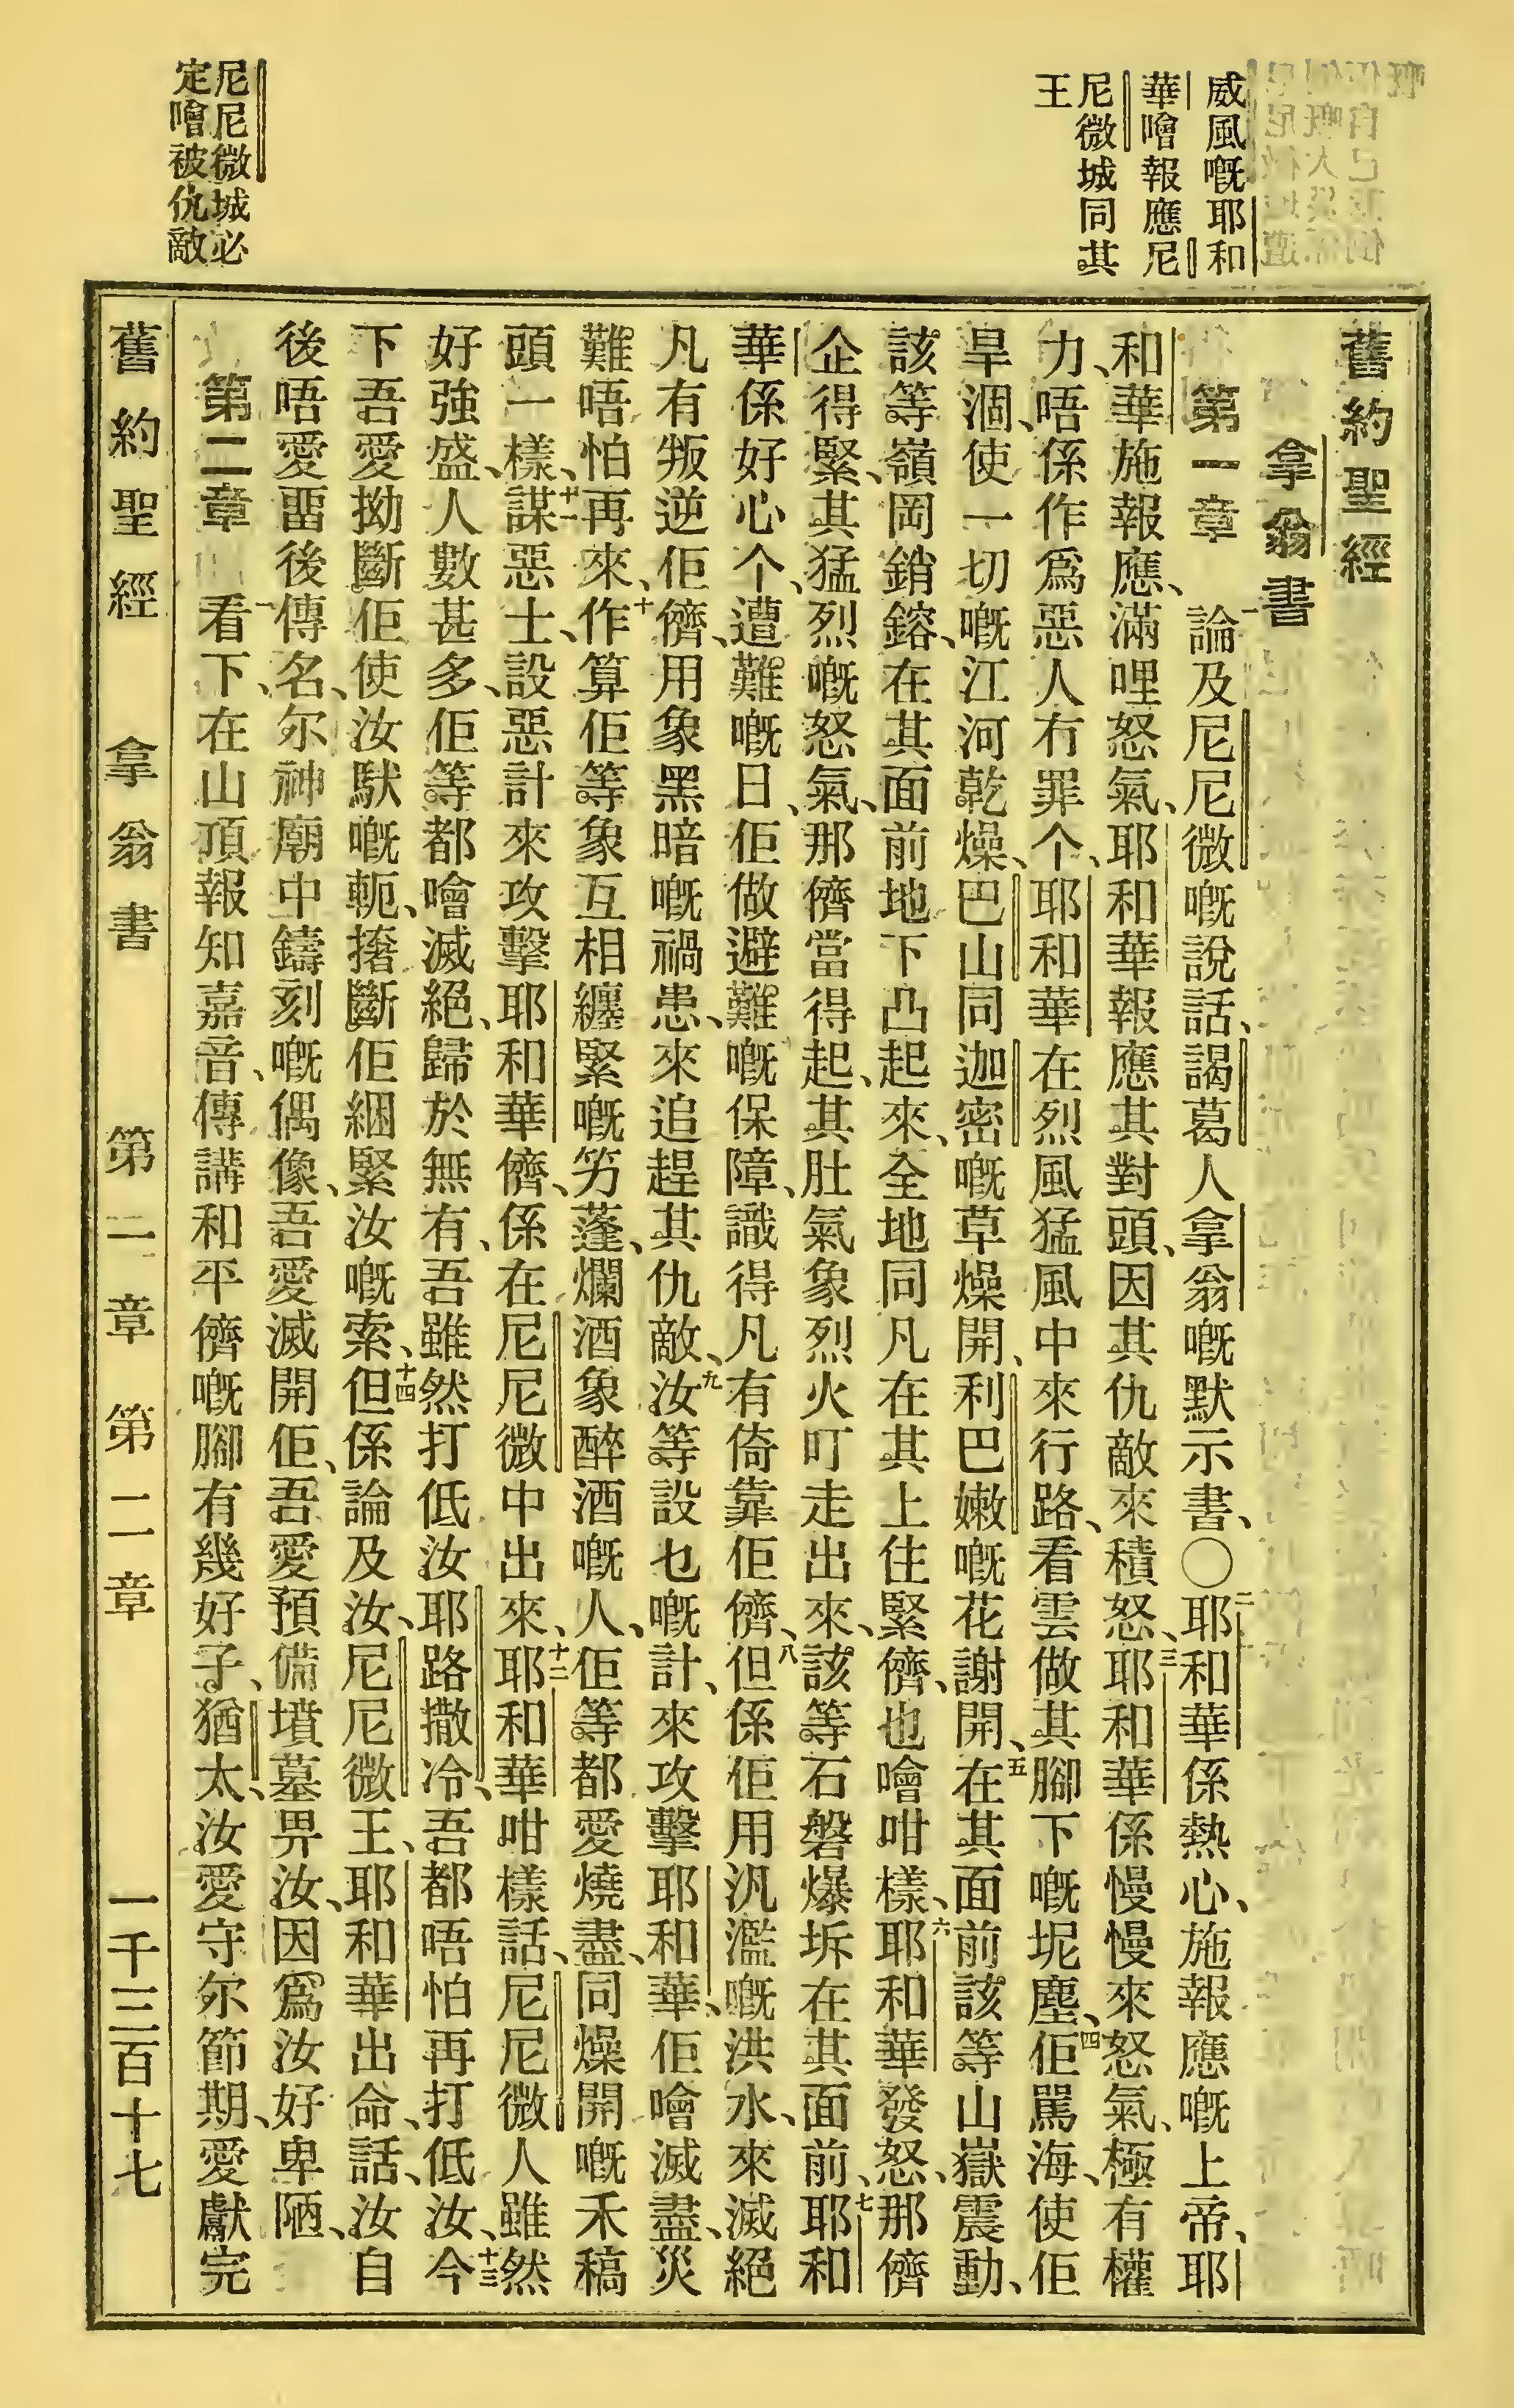 威風嘅耶和
華噲報應尼
尼微城同其
王
尼尼微城必
定噲被仇敵
舊約聖經
拿翁書
第一章 一論及尼尼微嘅說話、謁葛人拿翁嘅默示書、〇二耶和華係熱心、施報應嘅上帝、耶
和華施報應、滿哩怒氣、耶和華報應其對頭、因其仇敵來積怒、三耶和華係慢慢來怒氣、極有權
力、唔係作爲惡人冇罪个、耶和華在烈風猛風中來行路、看雲做其腳下嘅坭塵、四佢罵海、使佢
旱涸、使一切嘅江河乾燥、巴山同迦密嘅草燥開、利巴嫩嘅花謝開、五在其面前該等山嶽震動、
該等嶺岡銷鎔、在其面前地下凸起來、全地同凡在其上住緊儕、也噲咁樣、六耶和華發怒、那儕
企得緊、其猛烈嘅怒氣、那儕當得起、其肚氣象烈火叮走出來、該等石磐爆坼在其面前、七耶和
華係好心个、遭難嘅日、佢做避難嘅保障、識得凡有倚靠佢儕、八但係佢用汎濫嘅洪水、來滅絕
凡有叛逆佢儕、用象黑暗嘅禍患、來追趕其仇敵、九汝等設乜嘅計、來攻擊耶和華、佢噲滅盡、災
難唔怕再來、十作算佢等象互相纏緊嘅竻蓬、爛酒象醉酒嘅人、佢等都愛燒盡、同燥開嘅禾稿
頭一樣、十一謀惡士、設惡計來攻擊耶和華儕、係在尼尼微中出來、十二耶和華咁樣話、尼尼微人雖然
好強盛、人數甚多、佢等都噲滅絕、歸於無有、吾雖然打低汝耶路撒冷、吾都唔怕再打低汝、十三今
下吾愛拗斷佢使汝馱嘅軛、撦斷佢綑緊汝嘅索、十四但係論及汝、尼尼微王、耶和華出命、話、汝自
後唔愛畱後傳名、尔神廟中鑄刻嘅偶像、吾愛滅開佢、吾愛預備墳墓畀汝、因爲汝好卑陋、
第二章 一看下、在山頂報知嘉音、傳講和平儕嘅腳有幾好子、猶太、汝愛守尔節期、愛獻完
舊約聖經 拿翁書 第一章 第二章 一千三百十七